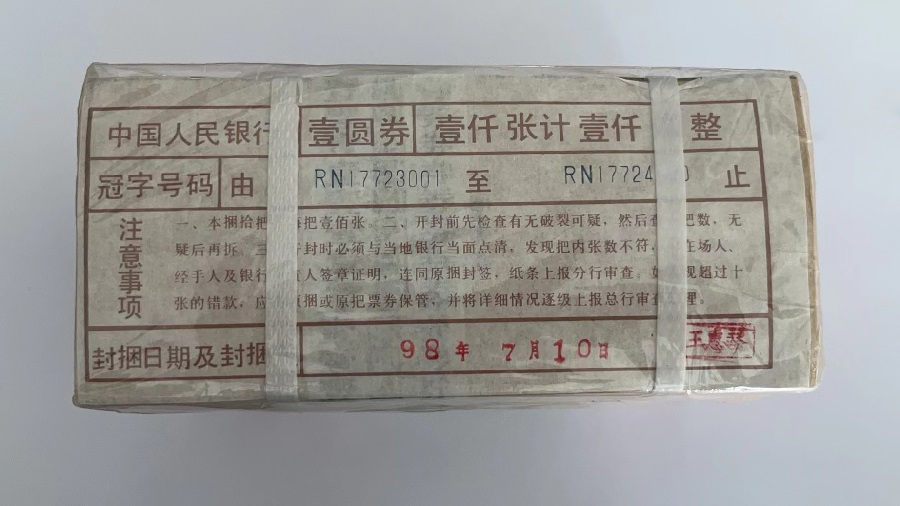 中国人民银行 壹圆券 壹仟张计壹仟 整
冠字号码 由 RN17723001 至 RN17724 0 止
注意事项
一、本捆拾把 每把壹佰张 二、开封前先检查有无破裂可疑，然后 把数，无
疑后再拆。三 开封时必须与当地银行当面点清，发现把内张数不符， 在场人、
经手人及银行 人签章证明，连同原捆封签，纸条上报分行审查。如 现超过十
张的错款，应 原捆或原把票券保管，并将详细情况逐级上报总行审 理。
封捆日期及封捆 98年 7月10日 王惠琴